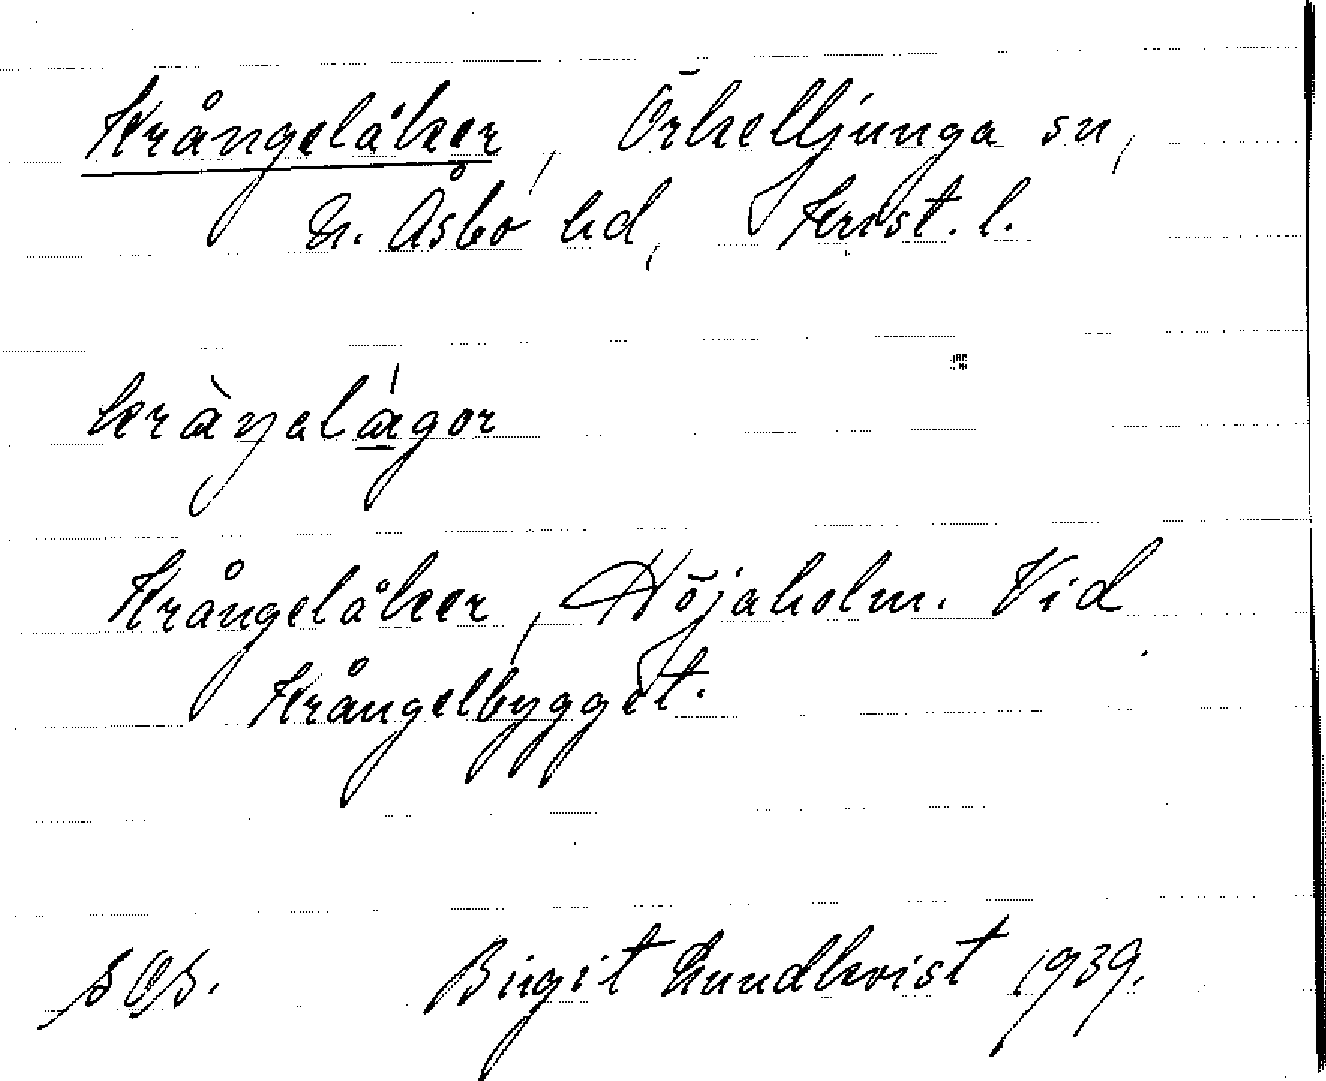 Krångelåker, Örkelljunga sn,
N. Åsbo hd, Krist. l.
kràŋəlágor
Krångelåker, Höjaholm. Vid
Krångelbygget.
SOS. Birgit Lundkvist 1939.